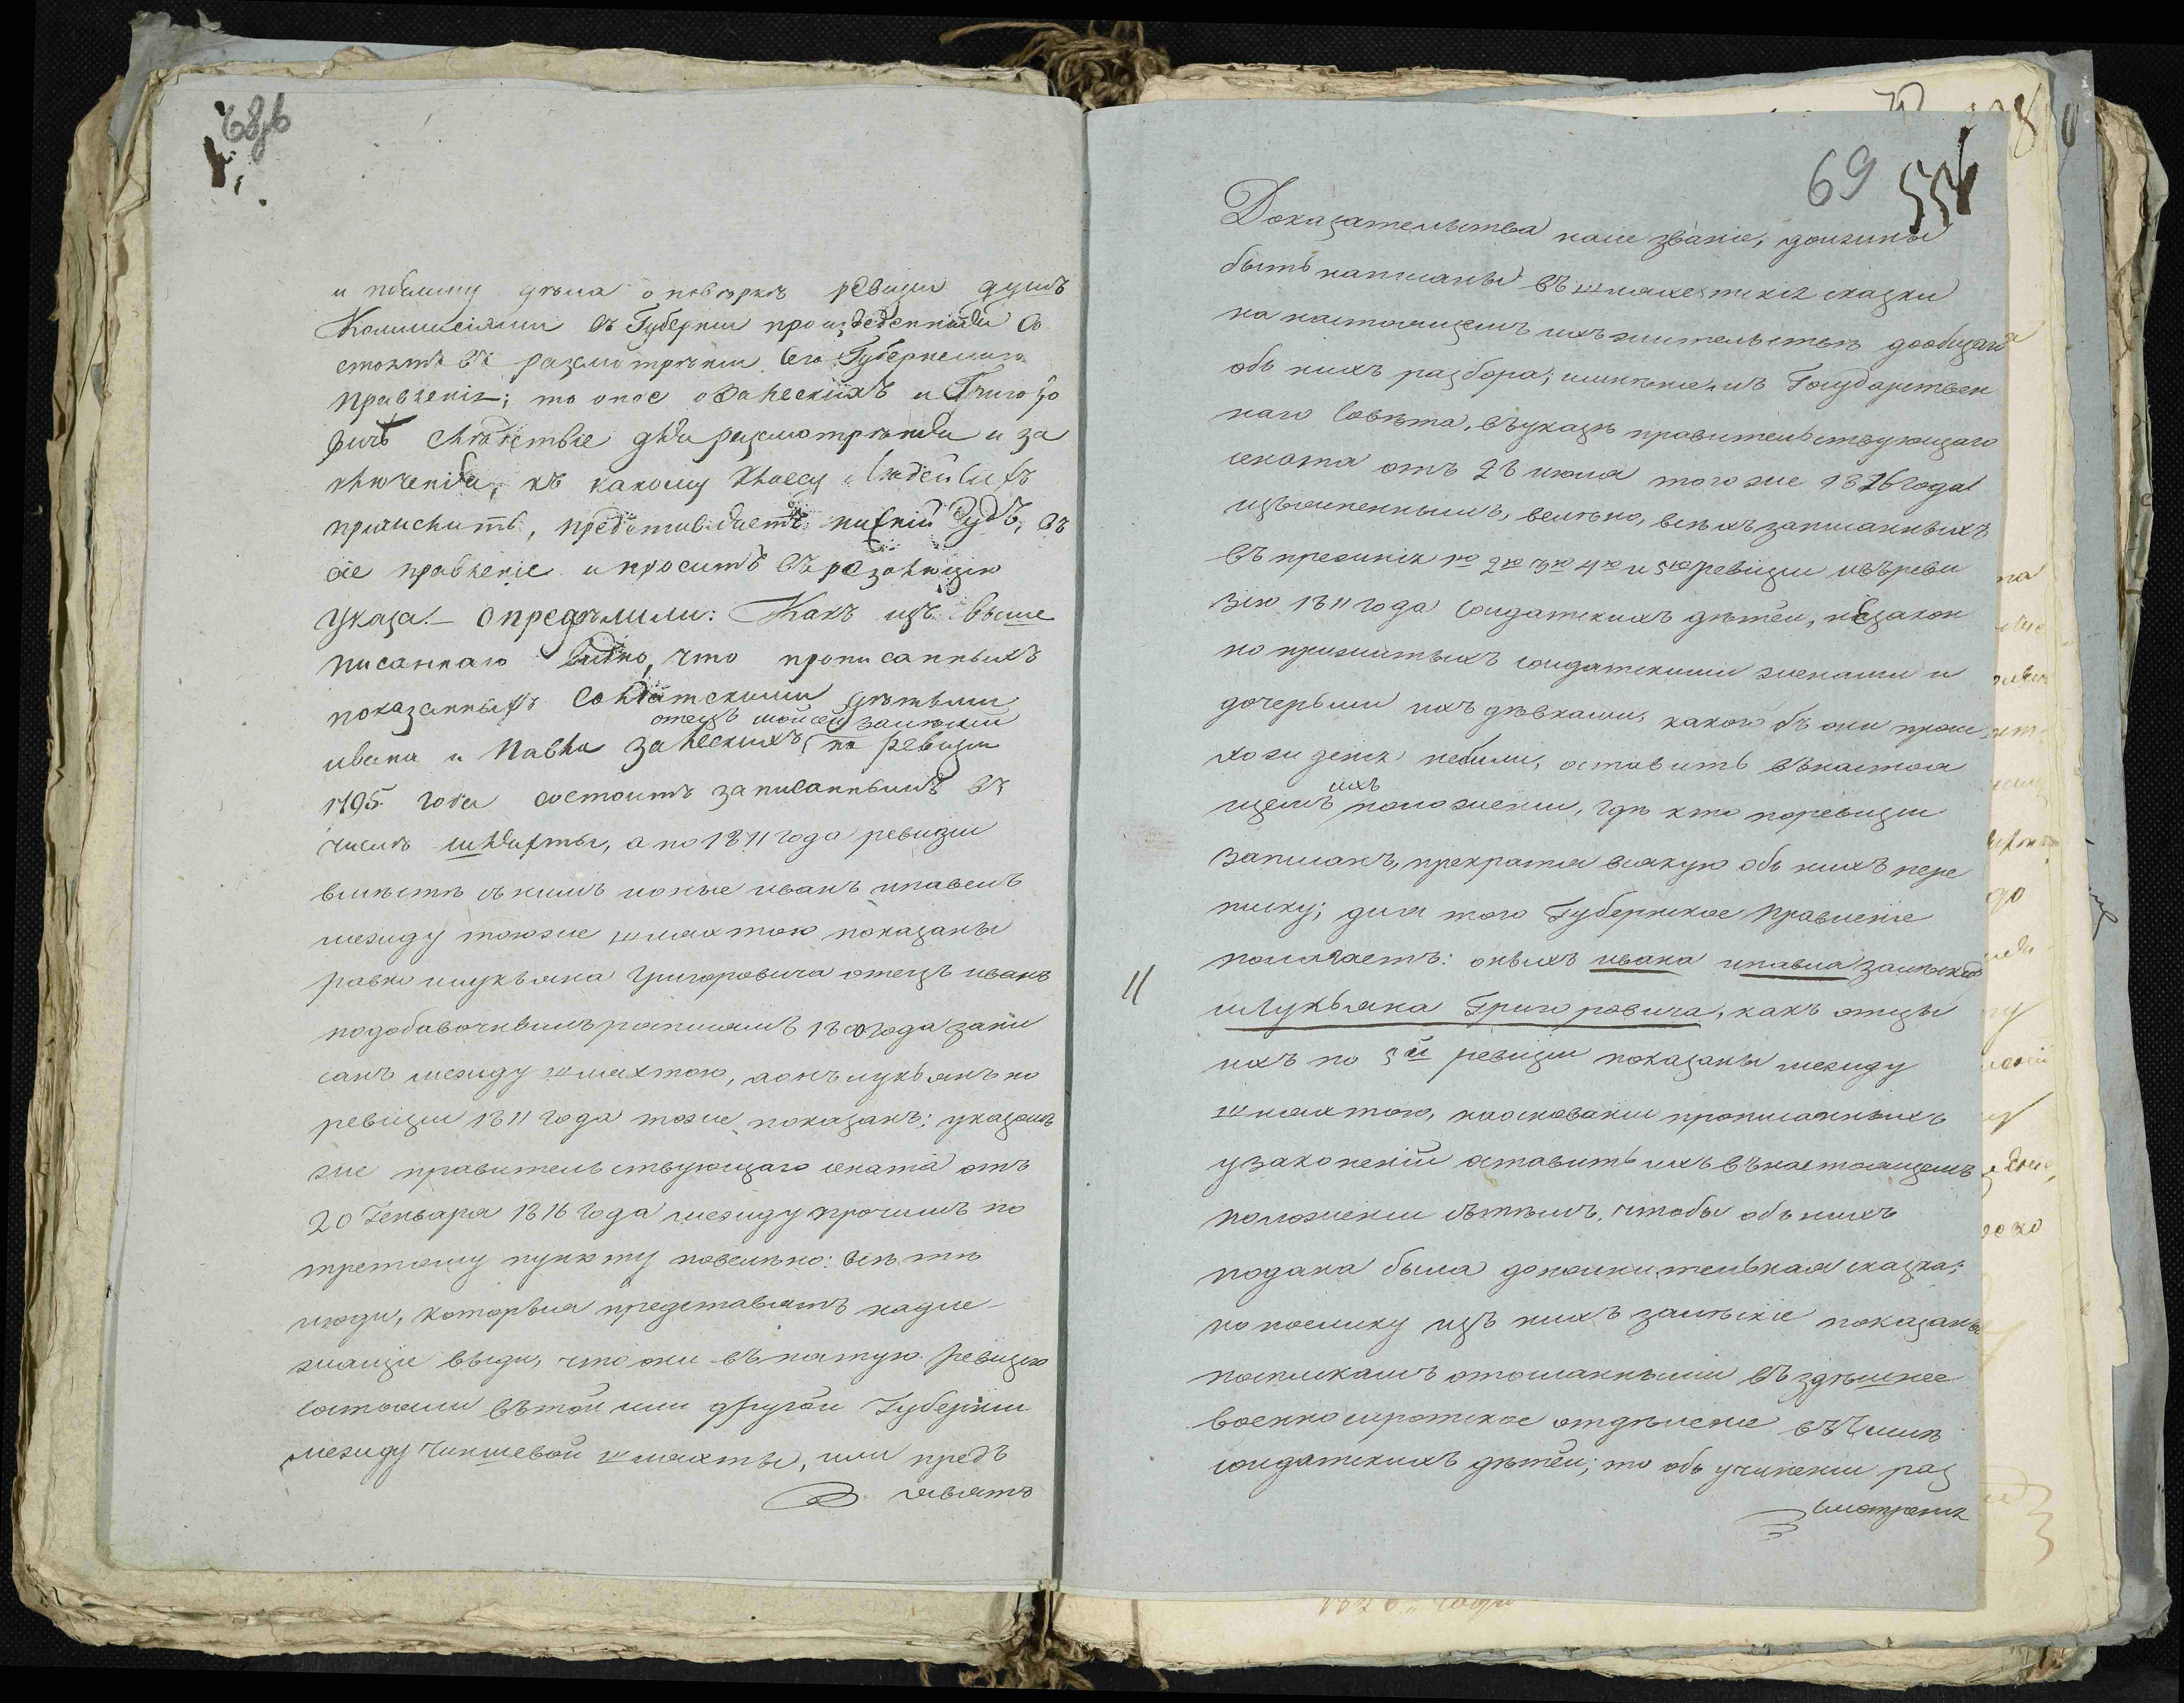 и поелику дѣла о повѣркѣ ревиціи душъ
Коммисіями въ Губерніи произведенныя со
стоятъ въ разсмотреніи Сего Губернскаго
Правленія; то оное о Залескихъ и Григоро
вичѣ слѣдствіе для разсмотрѣнія и за
ключенія, къ какому классу людей сихъ
причислить, представляетъ нижній Судъ, въ
сіе правленіе и проситъ въ резолюцію
указа. — Опредѣлили: Какъ изъ выше
писаннаго видно, что прописанныхъ
показанныхъ Солдатскими дѣтьми
отецъ мойсей залѣскій
ивана и Павла Залескихъ, по ревизіи
1795 года состоитъ записаннымъ въ
числѣ шляхты, а по 1811 года ревизіи
вмѣстѣ съ нимъ и оные иванъ и павелъ
между тоюже шляхтою показаны
равно и лукьяна Григоровича отецъ иванъ
по добавочнымъ росписямъ 1800 года запи
санъ между шляхтою, а онъ лукьянъ по
ревизіи 1811 года тоже показанъ; указомъ
же правительствующаго сената отъ
20 Генваря 1816 года между прочимъ по
третому пункту повелѣно: всѣ тѣ
люди, которыя представятъ надле-
жащіе виды, что они въ пятую ревизію
состояли въ той или другой Губерніи
между чиншевой шляхты, или предъ
явятъ
69
Доказательства наше званіе, должны
быть написаны въ шляхетскія сказки
на настоящемъ ихъ жительствѣ до общаго
объ нихъ разбора; мнѣніемъ Государствен
наго Совѣта, въ указѣ правительствующаго
сената отъ 28 июля того же 1816 года
изъясненнымъ, велѣно, всѣхъ записанныхъ
въ прежнія 1ю 2ю 3ю 4ю и 5ю ревизіи и въ реви
зію 1811 года солдатскихъ дѣтей, незакон
но прижитыхъ солдатскими женами и
дочерьми ихъ дѣвками, какого бъ они проис
хожденія небыли, оставить въ настоя
ихъ
щемъ положеніи, гдѣ кто по ревизіи
записанъ, прекратя всякую объ нихъ пере
писку; для того Губернское Правленіе
полагаетъ: оныхъ ивана и павла залѣскихъ
и Лукьяна Григоровича, какъ отцы
ихъ по 5й ревизіи показаны между
шляхтою, на основаніи прописанныхъ
узаконеній оставить ихъ въ настоящемъ
положеніи съ тѣмъ, чтобы объ нихъ
подана была дополнительная сказка;
но поелику изъ нихъ залѣскіе показаны
по спискамъ отосланными въ здѣшнее
военно сиротское отдѣленіе въ числѣ
солдатскихъ дѣтей; то объ учиненіи раз
смотренія